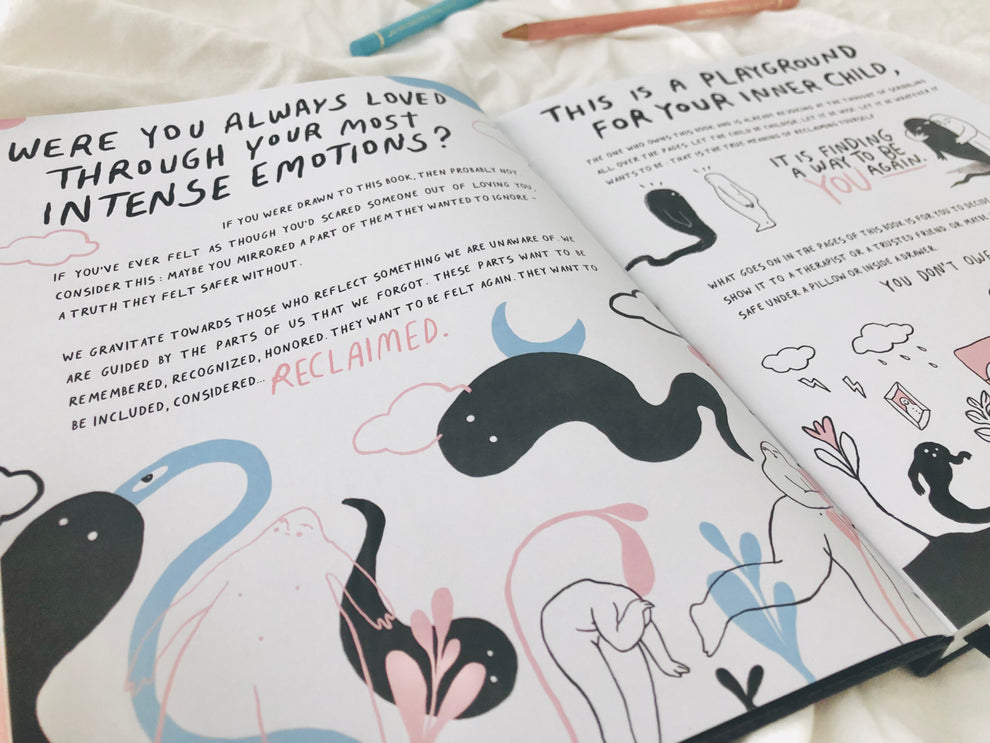 WERE YOU ALWAYS LOVED
THROUGH YOUR MOST
INTENSE EMOTIONS?
IF YOU WERE DRAWN TO THIS BOOK, THEN PROBABLY NOT.
IF YOU'VE EVER FELT AS THOUGH YOU'D SCARED SOMEONE OUT OF LOVING YOU,
CONSIDER THIS: MAYBE YOU MIRRORED A PART OF THEM THEY WANTED TO IGNORE -
A TRUTH THEY FELT SAFER WITHOUT.
WE GRAVITATE TOWARDS THOSE WHO REFLECT SOMETHING WE ARE UNAWARE OF. WE
ARE GUIDED BY THE PARTS OF US THAT WE FORGOT. THESE PARTS WANT TO BE
REMEMBERED, RECOGNIZED, HONORED. THEY WANT TO BE FELT AGAIN. THEY WANT TO
BE INCLUDED, CONSIDERED... RECLAIMED.
THIS IS A PLAYGROUND
FOR YOUR INNER CHILD,
THE ONE WHO OWNS THIS BOOK AND IS ALREADY REJOICING AT THE THOUGHT OF SCRIBBLING
ALL OVER THE PAGES. LET THE CHILD BE CHILDISH. LET IT BE WISE. LET IT BE WHATEVER IT
WANTS TO BE - THAT IS THE TRUE MEANING OF RECLAIMING YOURSELF
IT IS FINDING
A WAY TO BE
YOU AGAIN.
WHAT GOES ON IN THE PAGES OF THIS BOOK IS FOR YOU TO DECIDE
SHOW IT TO A THERAPIST OR A TRUSTED FRIEND, OR
SAFE UNDER A PILLOW OR INSIDE A DRAWER.
YOU DON'T OWE